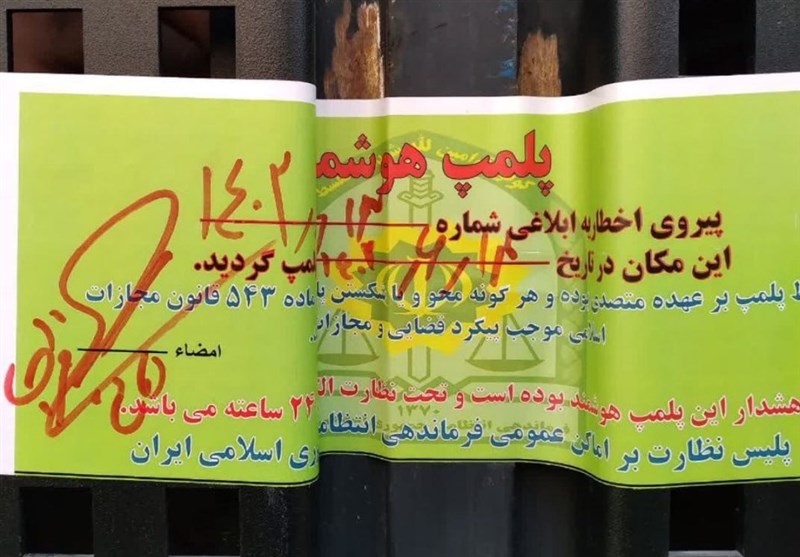 پلمپ هوشم
پیروی اخطاریه ابلاغی شماره ۱۴۰۲/
این مکان در تاریخ ۱۴۰۲ لمپ گردید.
ظ پلمپ بر عهده متصدی بوده و هر گونه محو و یا شکستن پل ماده ۵۴۳ قانون مجازات
اسلامی موجب پیگرد قضایی و مجازات
امضاء
هشدار این پلمپ هوشمند بوده است و تحت نظارت الک ۲۴ ساعته می باشد.
۱۳۷۰
پلیس نظارت بر اماکن عمومی فرماندهی انتظام ری اسلامی ایران